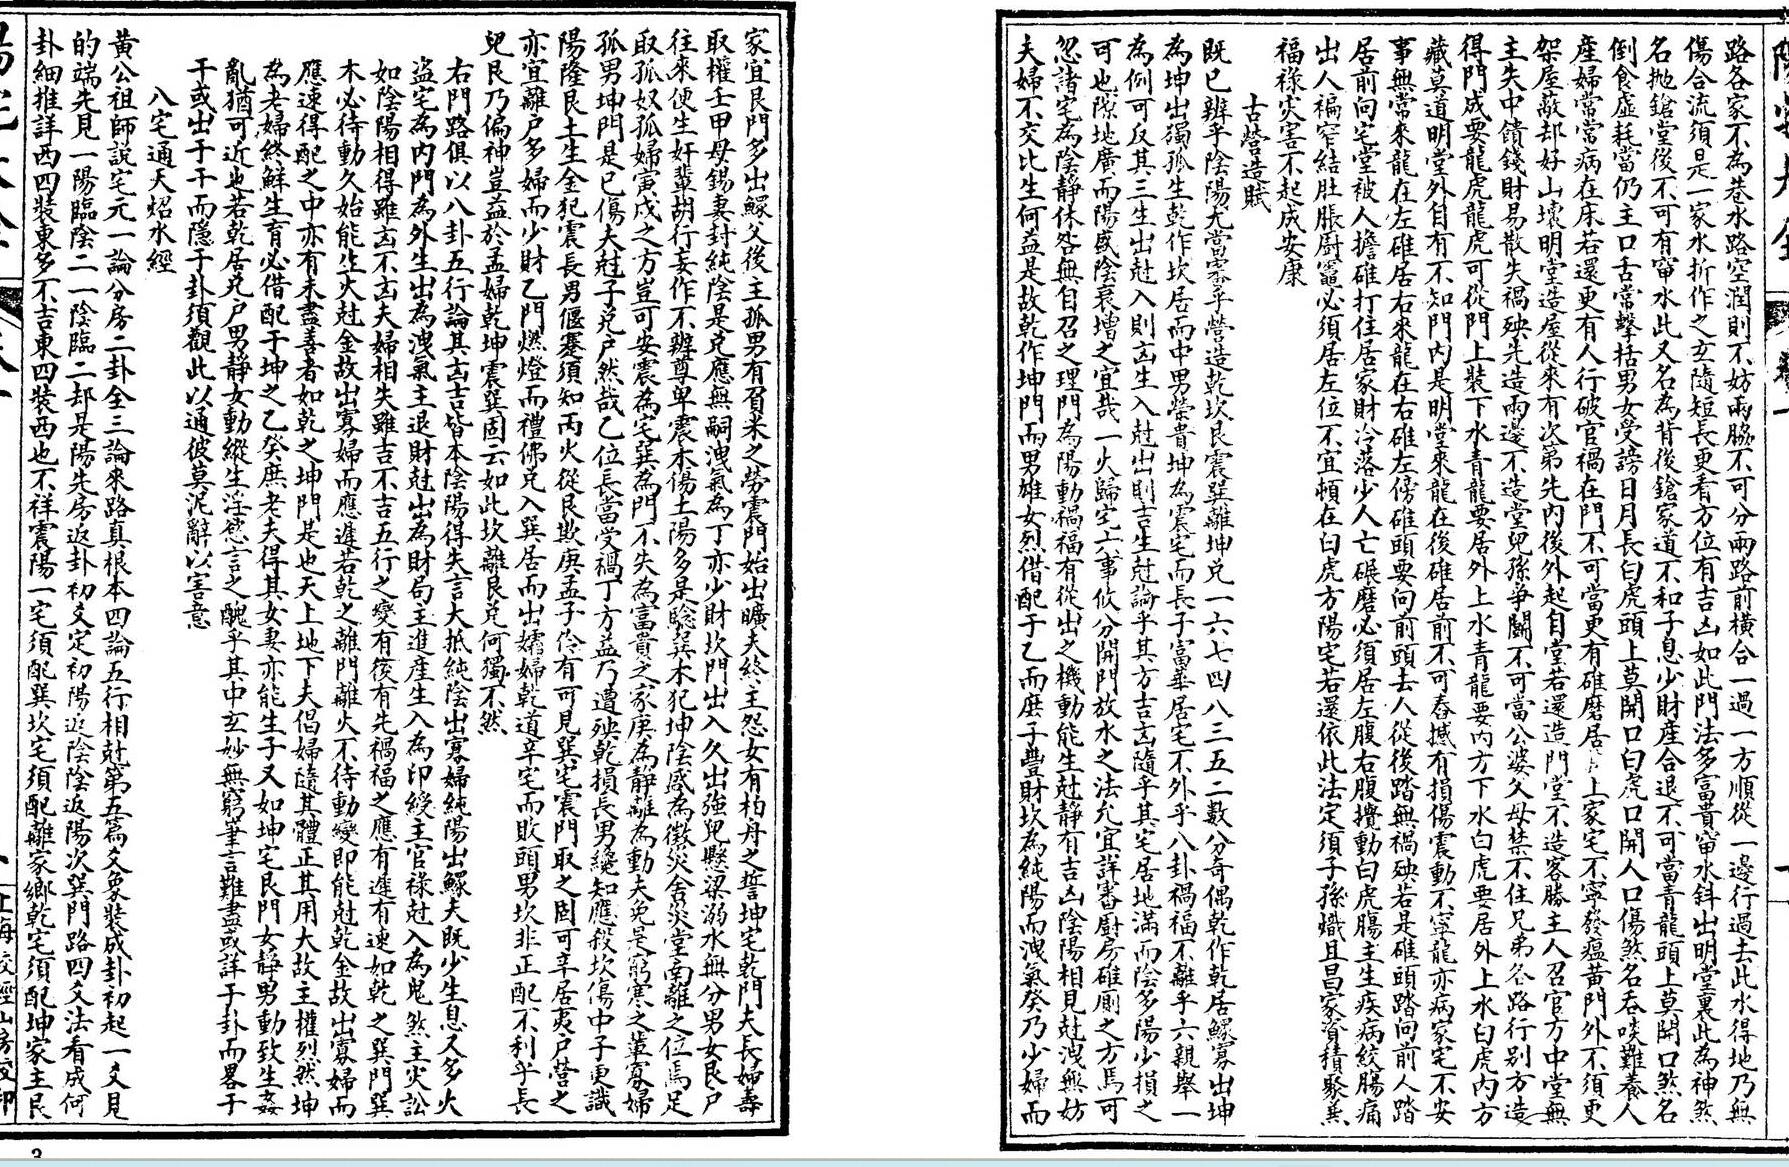 路各家不為巷水路空潤則不妨兩脇不可分兩路前橫合一過一方順從一邊行過去此水得地乃無
傷合流須是一家水折作之玄隨短長更看方位有吉凶如此門法多富貴窜水斜出明堂裏此為神煞
名拋鎗堂後不可有窜水此又名為背後鎗家道不和子息少財産合退不可當青龍頭上莫開口煞名
倒食虛耗當仍主口舌常擊括男女受謗日月長白虎頭上莫開口白虎口開人口傷煞名吞啖難養人
産婦常常病在床若還更有人行破官禍在門不可當更有碓磨居上家宅不寧發瘟黄門外不須更
架屋蔽却好山壞明堂造屋從來有次第先內後外起自堂若還造門堂不造客勝主人召官方中堂無
主失中饋錢財易散失禍殃先造兩邊不造堂兒孫爭鬭不可當公婆父母禁不住兄弟各路行别方造
得門成要龍虎龍虎可從門上裝下水青龍要居外上水青龍要內方下水白虎要居外上水白虎內方
藏莫道明堂外自有不知門內是明堂來龍在後碓居前不可舂撼有損傷震動不寧龍亦病家宅不安
事無常來龍在左碓居右來龍在右碓左傍碓頭要向前頭去人從後踏無禍殃若是碓頭踏向前人踏
居前向宅堂被人擔碓打住居家財冷落少人亡碾磨必須居左腹右腹攪動白虎腸主生疾病絞腸痛
出人褊窄結肚脹厨竈必須居左位不宜頓在白虎方陽宅若還依此法定須子孫熾且昌家資積聚兼
福祿灾害不起成安康
古營造賦
既已辨乎陰陽尤當審乎營造乾坎艮震巽離坤兌一六七四八三五二數分奇偶乾作乾居鰥寡出坤
為坤出獨孤生乾作坎居而中男榮貴坤為震宅而長子富華居宅不外乎八卦禍福不離乎六親舉一
為例可反其三生出尅入則凶生入尅出則吉生尅論乎其方吉凶隨乎其宅居地滿而陰多陽少損之
可也隙地廣而陽盛陰衰增之宜哉一火歸空工事攸分開門放水之法尤宜詳審厨房碓廁之方焉可
忽諸宅為陰靜休咎無自召之理門為陽動禍福有從出之機動能生尅靜有吉凶陰陽相見尅洩無妨
夫婦不交比生何益是故乾作坤門而男雄女烈借配于乙而庶子豐財坎為純陽而洩氣癸乃少婦而
家宜艮門多出鰥父後主孤男有負米之勞震門始出曠夫終主怨女有栢舟之誓坤宅乾門夫長婦壽
取權壬甲母錫妻封純陰是兌應無嗣洩氣為丁亦少財坎門出入久出強兒懸梁溺水無分男女艮戶
往來便生奸輩胡行妄作不辨尊卑震木傷土陽多是驗巽木犯坤陰盛為徵災舍災堂南離之位焉足
取孤奴孤婦寅戌之方豈可安震為宅巽為門不失為富貴之家庚為靜離為動夫免是窮寒之輩寡婦
孤男坤門是已傷夫尅子兌戶然哉乙位長當受禍丁方益乃遭殃乾損長男纔知應殺坎傷中子更識
陽隆艮土生金犯震長男偃蹇須知丙火從艮欺庚孟子伶有可見巽宅震門取之固可辛居夷戶營之
亦宜離戶多婦而少財乙門燃燈而禮佛兌入巽居而出孀婦乾道辛宅而敗頭男坎非正配不利乎長
兒艮乃偏神豈益於孟婦乾坤震巽固云如此坎離艮兌何獨不然
右門路俱以八卦五行論其吉凶皆本陰陽得失言大抵純陰出寡婦純陽出鰥夫既少生息又多火
盜宅為內門為外生出為洩氣主退財尅出為財局主進産生入為印綬主官祿尅入為鬼煞主火訟
如陰陽相得雖凶不凶夫婦相失雖吉不吉五行之變有後有先禍福之應有遲有速如乾之巽門巽
木必待動久始能生火尅金故出寡婦而應遲若乾之離門離火不待動變即能尅乾金故出寡婦而
應速得配之中亦有未盡善者如乾之坤門是也天上地下夫倡婦隨其體正其用大故主權烈然坤
為老婦終鮮生育必借配于坤之乙癸庶老夫得其女妻亦能生子又如坤宅艮門女靜男動致生姦
亂猶可近也若乾居兌戶男靜女動縱生淫慾言之醜乎其中玄妙無窮筆言難盡或詳于卦而畧于
干或出于干而隱于卦須觀此以通彼莫泥辭以害意
八宅通天炤水經
黃公祖師說宅元一論分房二卦全三論來路真根本四論五行相尅第五篇爻象裝成卦初起一爻見
的端先見一陽臨陰二一陰臨二却是陽先房返卦初爻定初陽返陰陰返陽次巽門路四爻法看成何
卦細推詳西四裝東多不吉東四裝西也不祥震陽一宅須配巽坎宅須配離家鄉乾宅須配坤家主艮
3